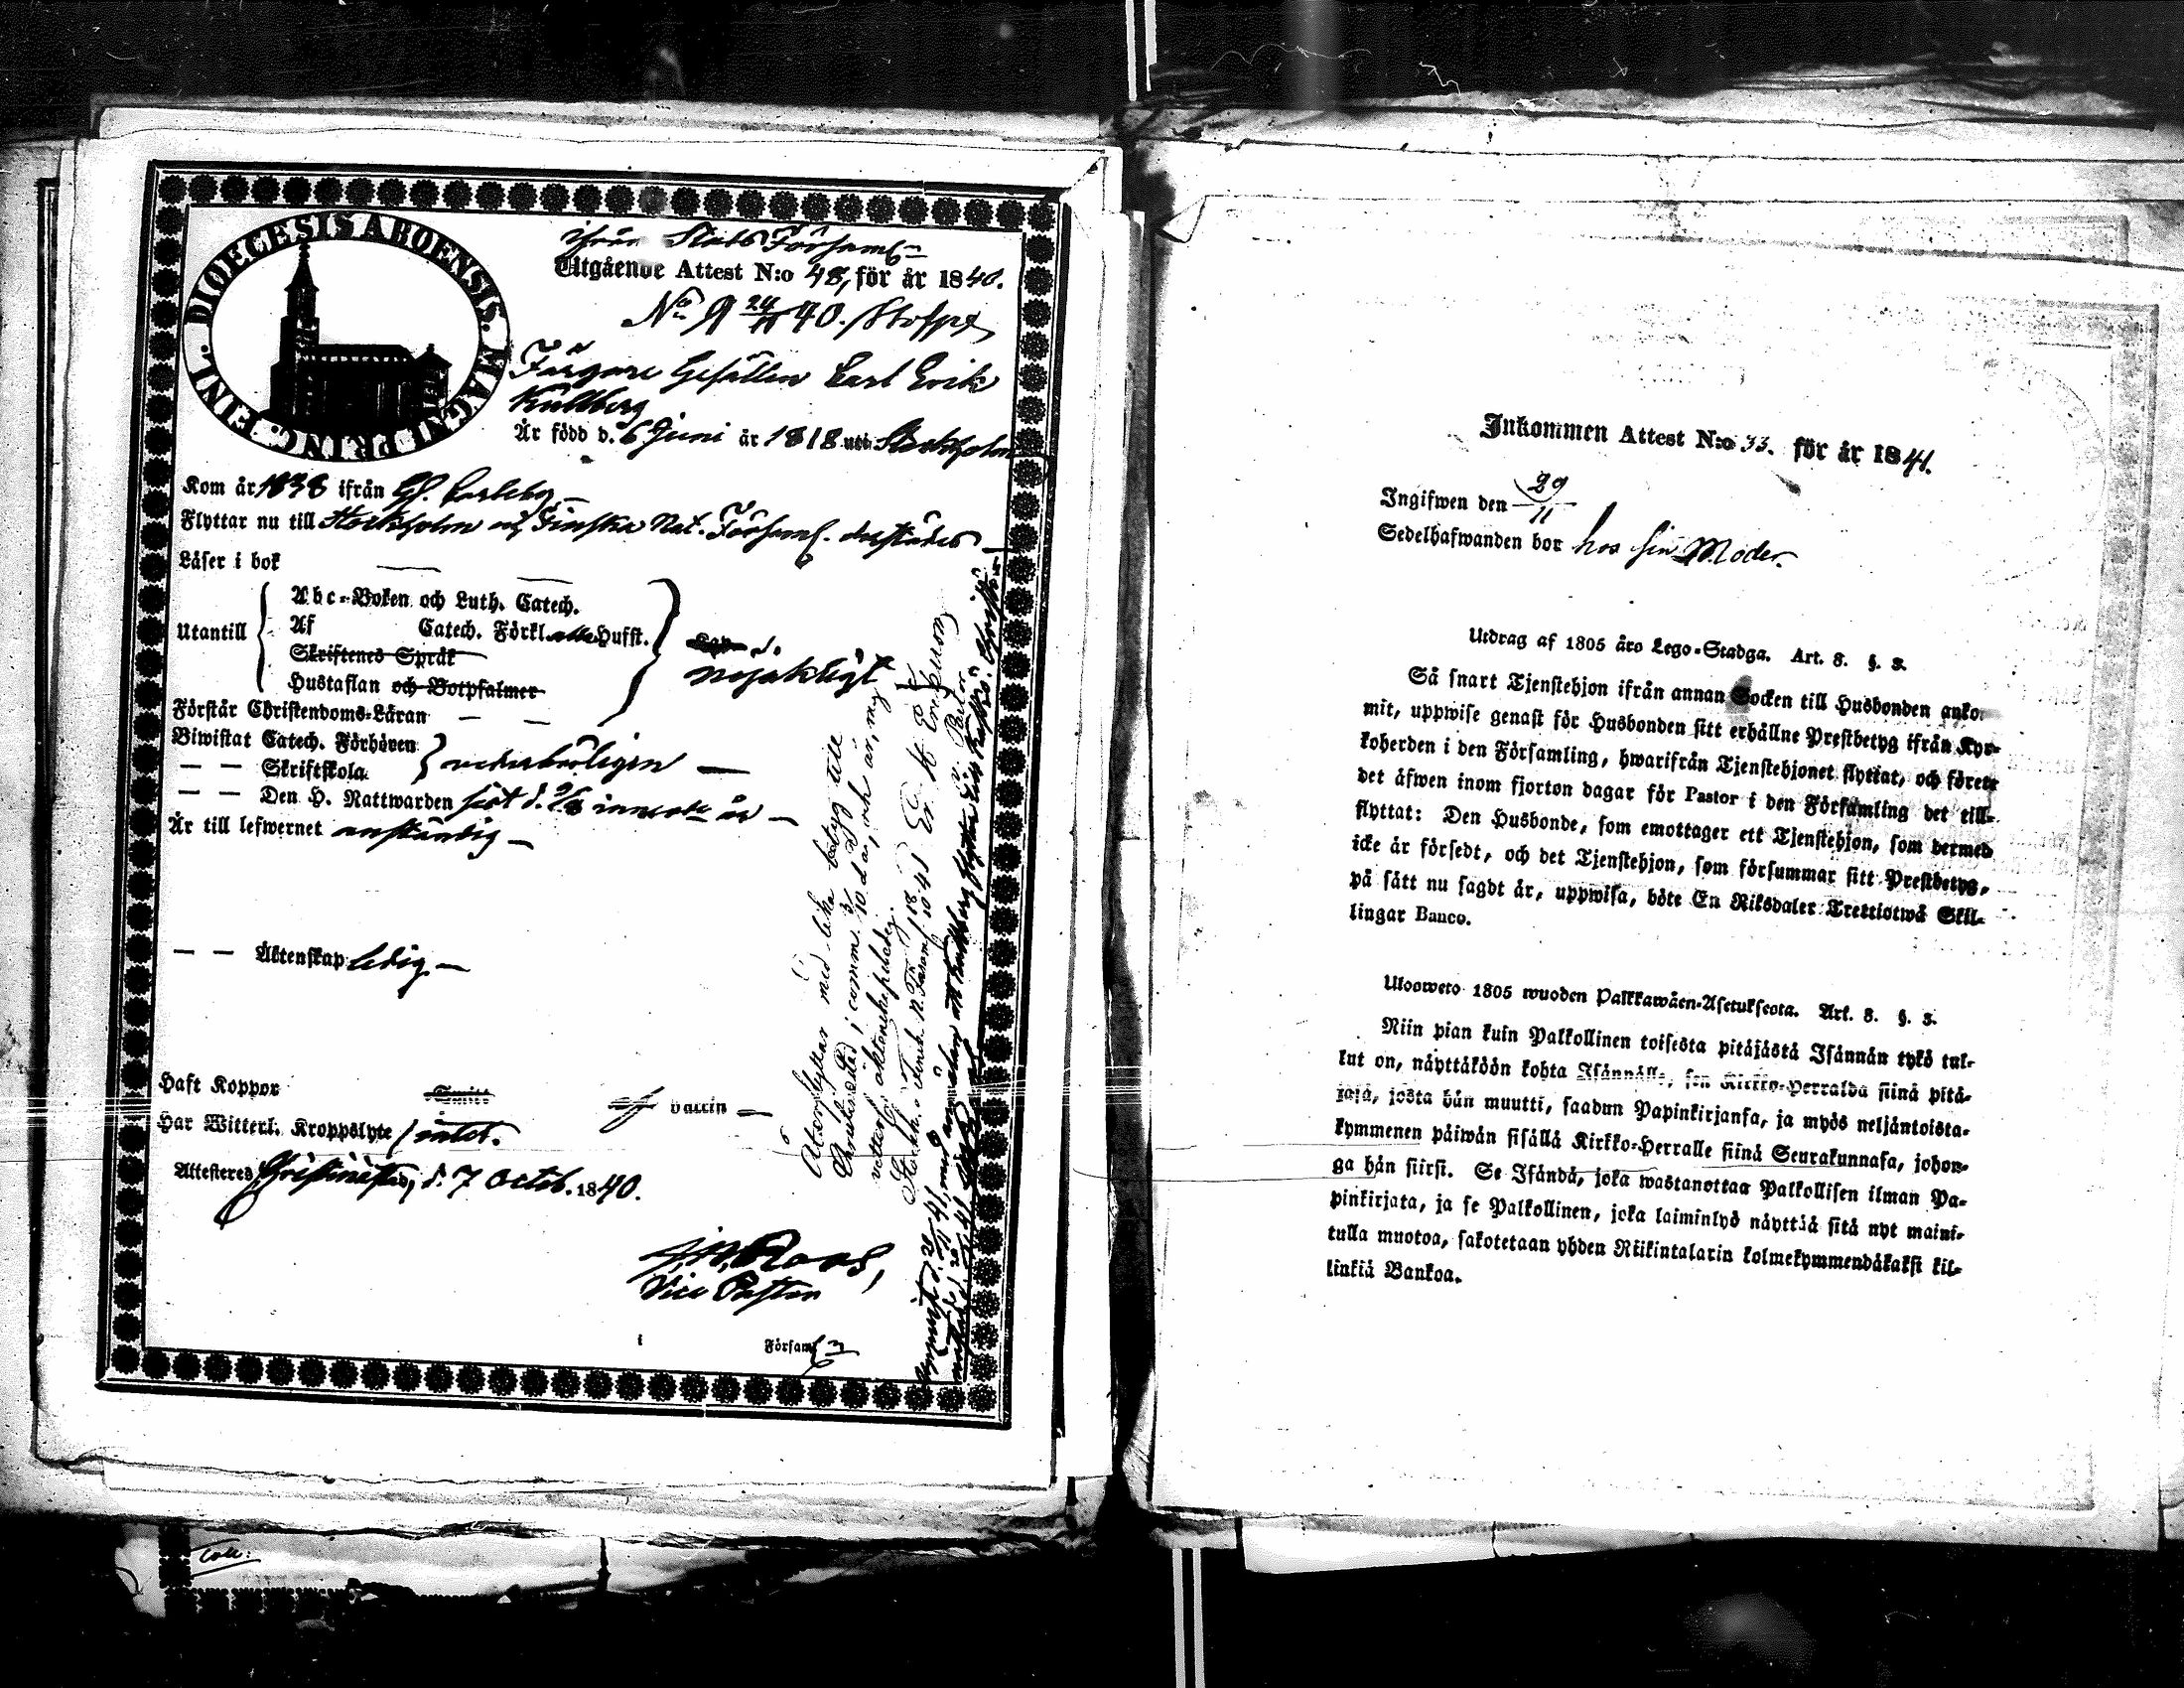 DIOECESIS ABOENSIS. MAGNI PRINC. FINL.
ifrån Stads Församl:n
Utgående Attest N:o 48, för år 1840.
No 9 24/11 40.
Färgare Gesällen Carl Erik
Kullberg
Är född d. 6 Juni år 1818 uti Stockholm
Kom år 1838 ifrån Gl. Carleby
Flyttar nu till Stockholm och Finska Nat. Församl. derstädes
Läser i bok
Utantill
Abc-Boken och Luth. Catech.
Af Catech. Förkl. alla Hufst.
Skriftenes Språk
Hustaflan och Botpsalmer
nöjaktigt
Förstår Christendoms-Läran
Biwistat Catech. Förhören
— — Skriftskola
wederbörligen
— — Den H. Nattwarden sist d. innew. år
Är till lefwernet anständig
— — Äktenskap ledig
Haft Koppor vaccin
Har Witterl. Kroppslyte intet.
Attesteras Christinestad, d. 7 Octob. 1840.
Roos,
Vice Pastor
i Församl
Återflyttar med lika betyg till
Christinestad i comm. d. å., och är, mig
veterl. äktenskapsledig.
Stockh. o. Finsk. N. Förs.
Pastor
Coll:
Inkommen Attest N:o 33. för år 1841.
Ingifwen den 29/11
Sedelhafwanden bor hos sin Moder.
Utdrag af 1805 års Lego-Stadga. Art. 8. §. 3.
Så snart Tjenstehjon ifrån annan Socken till Husbonden anko-
mit, uppwise genast för Husbonden sitt erhållne Prestbetyg ifrån Kyr-
koherden i den Församling, hwarifrån Tjenstehjonet flyttat, och förete
det äfwen inom fjorton dagar för Pastor i den Församling det till-
flyttat: Den Husbonde, som emottager ett Tjenstehjon, som dermed
icke är försedt, och det Tjenstehjon, som försummar sitt Prestbetyg,
på sätt nu sagdt är, uppwisa, böte En Riksdaler Trettiotwå Skil-
lingar Banco.
Ulosweto 1805 wuoden Palkkawäen-Asetuksesta. Art. 8. §. 3.
Niin pian kuin Palkollinen toisesta pitäjästä Isännän tykö tul-
lut on, näyttäköön kohta Isännälle, sen Kirkko-Herralda siinä pitä-
jäsä, josta hän muutti, saadun Papinkirjansa, ja myös neljäntoista-
kymmenen päiwän sisällä Kirkko-Herralle siinä Seurakunnasa, johon-
ga hän siirsi. Se Isändä, joka wastanottaa Palkollisen ilman Pa-
pinkirjata, ja se Palkollinen, joka laiminlyö näyttää sitä nyt maini-
tulla muotoa, sakotetaan yhden Riikintalarin kolmekymmendäkaksi kil-
linkiä Bankoa.